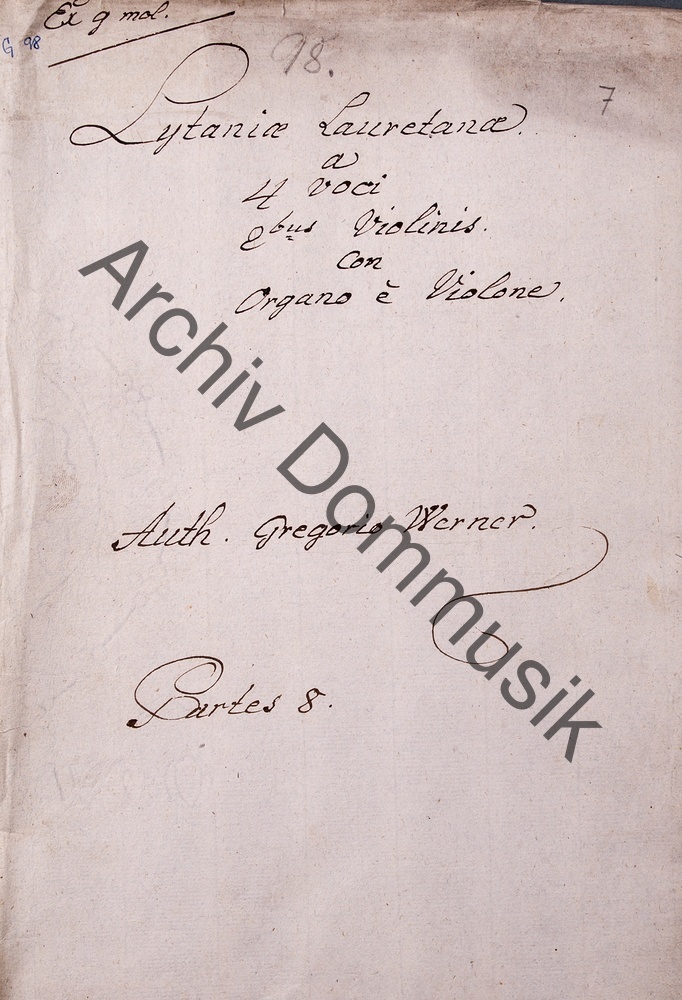 Ex g mol.
G 98
98.
7
Lytaniæ Lauretanæ.
a
4 voci
2bus Violinis.
Con
Organo è Violone.
Auth. Gregorio Werner.
Partes 8.
Archiv Dommusik